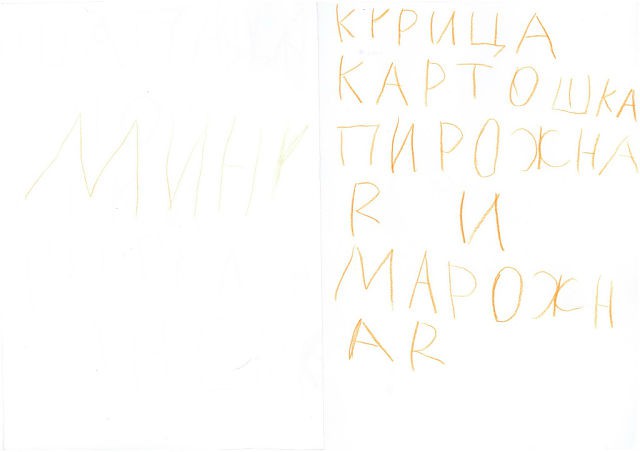 МИНУ
КУРИЦА
КАРТОШКА
ПИРОЖНА
Я И
МАРОЖН
АЯ